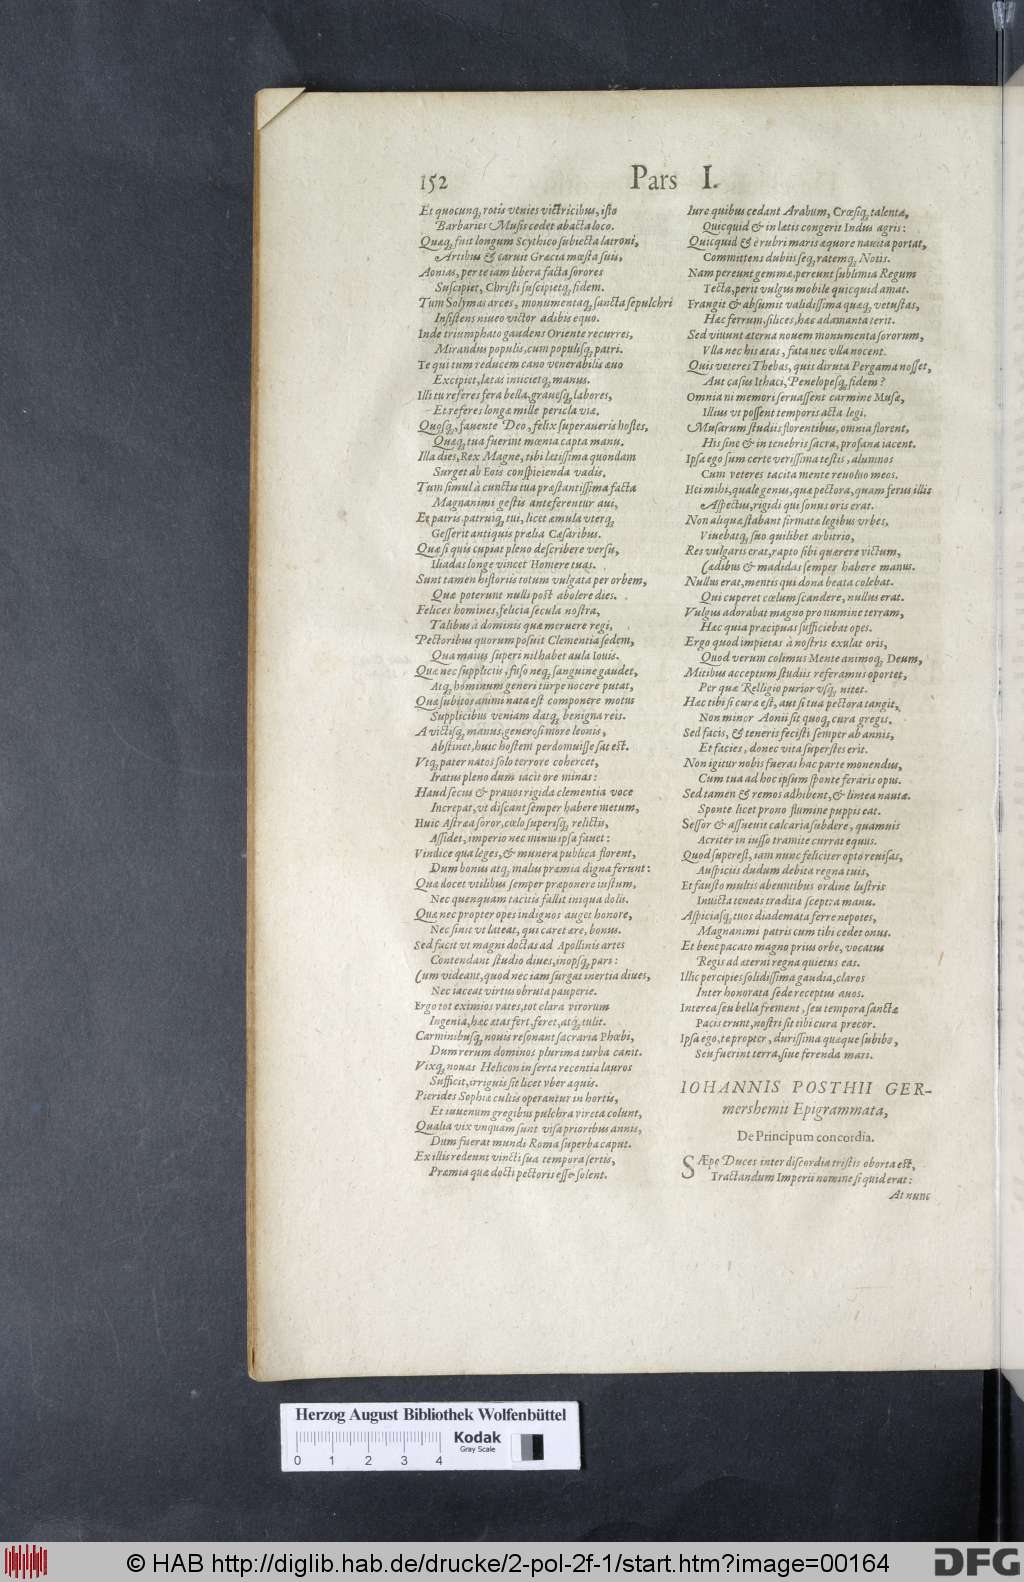 152
Pars I.
Et quocunq, rotis vtnies victricibus, isto
Barbaries Musis cedet abacta loco.
Quæq, fuit longum Scythico subiecta latroni,
Artibus & caruit Græcia mœsta suis,
Aonias, per te iam libera facta sorores
Suscipiet, Christi suscipietq, fidem.
Tum Solymas arces, monumentaq, sancta sepulchri
Insistens niueo victor adibis equo.
Inde triumphato gaudens Oriente recurres,
Mirandus populis, cum populisq, patri.
Te qui tum reducem cano venerabilis æuo
Excipiet, lætas iniicietq, manus.
Illi tu referes fera bella, grauesq, labores,
Et referes longæ mille pericla viæ.
Quosq, fauente Deo, felix superaueris hostes,
Quæq, tua fuerint mœnia capta manu.
Illa dies, Rex Magne, tibi lætissima quondam
Surget ab Eois conspicienda vadis.
Tum simul à cunctis tua præstantissima facta
Magnanimi gestis anteferentur aui,
Et patris, patruiq, tui, licet æmula vterq,
Gesserit antiquis prælia Cæsaribus.
Quæ si quis cupiat pleno describere versu,
Iliadas longe vincet Homere tuas.
Sunt tamen historiis totum vulgata per orbem,
Quæ poterunt nulli post abolere dies.
Felices homines, felicia secula nostra,
Talibus à dominis quæ meruere regi,
Pectoribus quorum posuit Clementia sedem,
Qua maius superi nil habet aula Iouis.
Quæ nec suppliciis, fuso neq, sanguine gaudet,
Atq, hominum generi turpe nocere putat,
Quæ subitos animi nata est componere motus
Supplicibus veniam datq, benigna reis.
A victisq, manus, generosi more leonis,
Abstinet, huic hostem perdomuisse sat est.
Vtq, pater natos solo terrore cohercet,
Iratus pleno dum iacit ore minas:
Haud secius & prauos rigida clementia voce
Increpat, vt discant semper habere metum,
Huic Astræa soror, cœlo superisq, relictis,
Assidet, imperio nec minus ipsa fauet:
Vindice qua leges, & munera publica florent,
Dum bonus atq, malus præmia digna ferunt:
Quæ docet vtilibus semper præponere iustum,
Nec quenquam tacitis fallit iniqua dolis.
Quæ nec propter opes indignos auget honore,
Nec sinit vt lateat, qui caret ære, bonus.
Sed facit vt magni doctas ad Apollinis artes
Contendant studio diues, inopsq, pari:
Cum videant, quod nec iam surgat inertia diues,
Nec iaceat virtus obruta pauperie.
Ergo tot eximios vates, tot clara virorum
Ingenia, hæc ætas fert, feret, atq, tulit.
Carminibusq, nouis resonant sacraria Phœbi,
Dum rerum dominos plurima turba canit.
Vixq, nouas Helicon in serta recentia lauros
Sufficit, irriguis sit licet vber aquis.
Pierides Sophiæ cultis operantur in hortis,
Et iuuenum gregibus pulchra vireta colunt,
Qualia vix vnquam sunt visa prioribus annis,
Dum fuerat mundi Roma superba caput.
Ex illis redeunt vincti sua tempora sertis,
Præmia quæ docti pectoris esse solent.
Iure quibus cedant Arabum, Crœsiq, talenta,
Quicquid & in lætis congerit Indus agris:
Quicquid & è rubri maris æquore nauita portat,
Committens dubiis seq, ratemq, Notis.
Nam pereunt gemmæ, pereunt sublimia Regum
Tecta, perit vulgus mobile quicquid amat.
Frangit & absumit validissima quæq, vetustas,
Hæc ferrum, silices, hæc adamanta terit.
Sed viuunt æterna nouem monumenta sororum,
Vlla nec his ætas, fata nec vlla nocent.
Quis veteres Thebas, quis diruta Pergama nosset,
Aut casus Ithaci, Penelopesq, fidem?
Omnia ni memori seruassent carmine Musæ,
Illius vt possent temporis acta legi.
Musarum studiis florentibus, omnia florent,
His sine & in tenebris sacra, profana iacent.
Ipsa ego sum certe verissima testis, alumnos
Cum veteres tacita mente reuoluo meos.
Hei mihi, quale genus, quæ pectora, quam ferus illis
Aspectus, rigidi qui sonus oris erat.
Non aliquæ stabant firmatæ legibus vrbes,
Viuebatq, suo quilibet arbitrio,
Res vulgaris erat, rapto sibi quærere victum,
Cædibus & madidas semper habere manus.
Nullus erat, mentis qui dona beata colebat.
Qui cuperet cœlum scandere, nullus erat.
Vulgus adorabat magno pro numine terram,
Hæc quia præcipuas sufficiebat opes.
Ergo quod impietas à nostris exulat oris,
Quod verum colimus Mente animoq, Deum,
Mitibus acceptum studiis referamus oportet,
Per quæ Relligio purior vsq, nitet.
Hæc tibi si curæ est, aut si tua pectora tangit,
Non minor Aonii sit quoq, cura gregis.
Sed facis, & teneris fecisti semper ab annis,
Et facies, donec vita superstes erit.
Non igitur nobis fueras hac parte monendus,
Cum tua ad hoc ipsum sponte feraris opus.
Sed tamen & remos adhibent, & lintea nautæ.
Sponte licet prono flumine puppis eat.
Sessor & assueuit calcaria subdere, quamuis
Acriter in iusso tramite currat equus.
Quod superest, iam nunc feliciter opto reuisas,
Auspiciis dudum debita regna tuis,
Et fausto multis abeuntibus ordine lustris
Inuicta teneas tradita sceptra manu.
Aspiciasq, tuos diademata ferre nepotes,
Magnanimi patris cum tibi cedet onus.
Et bene pacato magno prius orbe, vocatus
Regis ad æterni regna quietus eas.
Illic percipies solidissima gaudia, claros
Inter honorata sede receptus auos.
Interea seu bella frement, seu tempora sanctæ
Pacis erunt, nostri sit tibi cura precor.
Ipsa ego, te propter, durissima quæque subibo,
Seu fuerint terra, siue ferenda mari.
IOHANNIS POSTHII GER-
mershemii Epigrammata,
De Principum concordia.
SÆpe Duces inter discordia tristis oborta est,
Tractandum Imperii nomine si quid erat:
At nunc
Herzog August Bibliothek Wolfenbüttel
Kodak
Gray Scale
0 1 2 3 4
© HAB http://diglib.hab.de/drucke/2-pol-2f-1/start.htm?image=00164
DFG